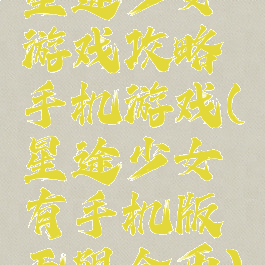 星途少女
游戏攻略
手机游戏(
星途少女
有手机版